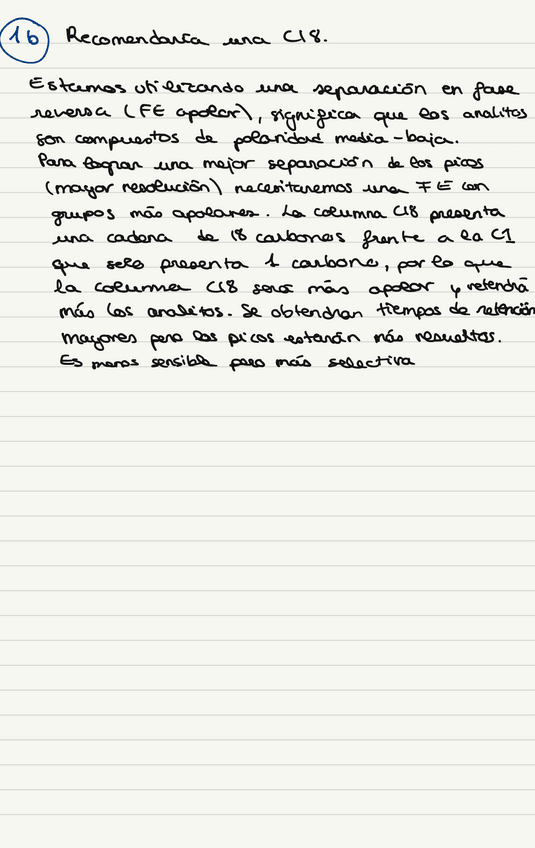 1b Recomendaría una C18.
Estamos utilizando una separación en fase
reversa (FE apolar), significa que los analitos
son compuestos de polaridad media-baja.
Para lograr una mejor separación de los picos
(mayor resolución) necesitaremos una FE con
grupos más apolares. La columna C18 presenta
una cadena de 18 carbonos frente a la C1
que solo presenta 1 carbono, por lo que
la columna C18 será más apolar y retendrá
más los analitos. Se obtendran tiempos de retención
mayores pero los picos estarán más resueltos.
Es menos sensible pero más selectiva